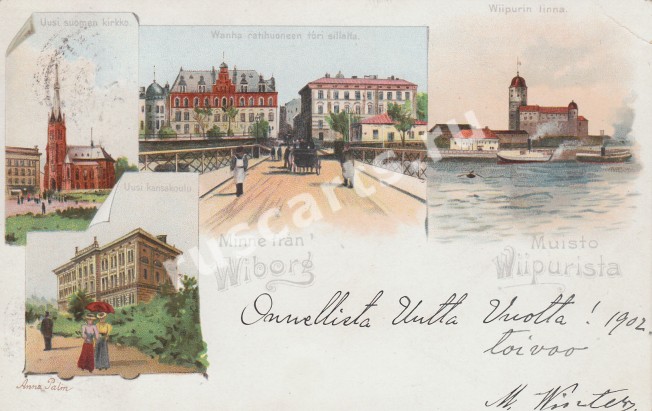 Uusi suomen kirkko.
Wanha ratihuoneen tori sillalta.
Wiipurin linna.
Uusi kansakoulu.
Minne från
Wiborg
Muisto
Wiipurista
Onnellista Uutta Vuotta! 1902.
toivoo
M.
Anna Palm
ruscarts.ru